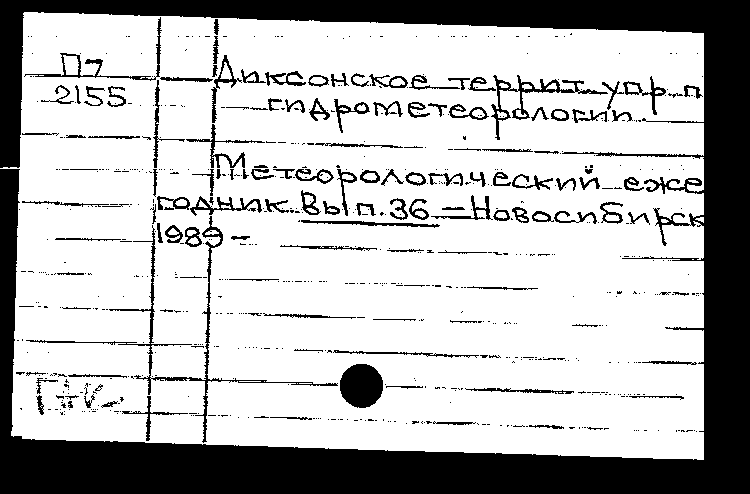 П7
2155
Диксонское террит. упр. п
гидрометеорологии.
Метеорологический еже
годник. Вып. 36 – Новосибирск
1989 –
ГАК